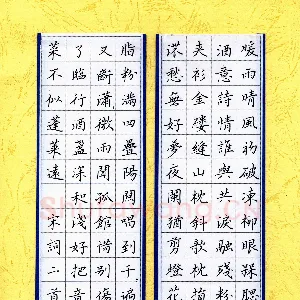 暖雨晴風初破凍柳眼梅腮
酒意詩情誰與共淚融殘粉
夾衫金縷縫山枕斜欹枕
濃愁無好夢夜闌猶剪燈花
脂粉滿四疊陽關唱到千遍
又斷瀟微雨聞孤館惜別傷
了臨行酒盞深和淺好把音
萊不似蓬萊遠 宋詞二首